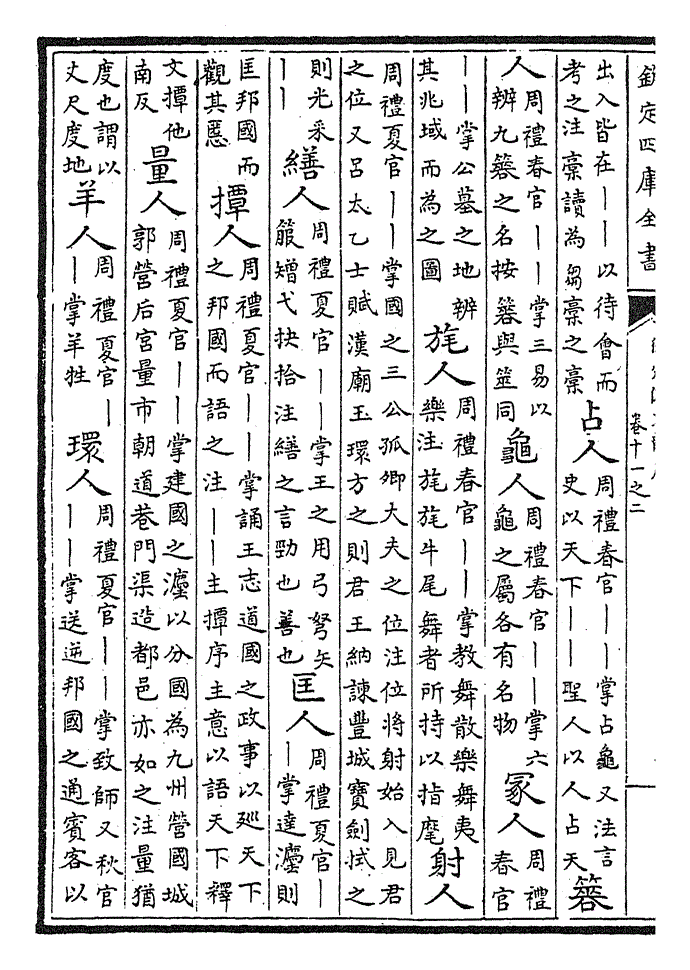 欽定四庫全書
卷十一之二
出入皆在丨丨以待會而
考之注槀讀為芻槀之槀
占人
周禮春官丨丨掌占龜又法言
史以天下丨丨聖人以人占天
簭
人
周禮春官丨丨掌三易以
辨九簭之名按簭與筮同
龜人
周禮春官丨丨掌六
龜之屬各有名物
冢人
周禮
春官
丨丨掌公墓之地辨
其兆域而為之圖
旄人
周禮春官丨丨掌教舞散樂舞夷
樂注旄旄牛尾舞者所持以指麾
射人
周禮夏官丨丨掌國之三公孤卿大夫之位注位將射始入見君
之位又呂太乙士賦漢廟玉環方之則君王納諫豐城寶劍拭之
則光采
丨丨
繕人
周禮夏官丨丨掌王之用弓弩矢
箙矰弋抉拾注繕之言勁也善也
匡人
周禮夏官丨
丨掌達灋則
匡邦國而
觀其慝
撢人
周禮夏官丨丨掌誦王志道國之政事以廵天下
之邦國而語之注丨丨主撢序主意以語天下釋
文撢他
南反
量人
周禮夏官丨丨掌建國之灋以分國為九州營國城
郭營后宮量市朝道巷門渠造都邑亦如之注量猶
度也謂以
丈尺度地
羊人
周禮夏官丨
丨掌羊牲
環人
周禮夏官丨丨掌致師又秋官
丨丨掌送逆邦國之通賓客以